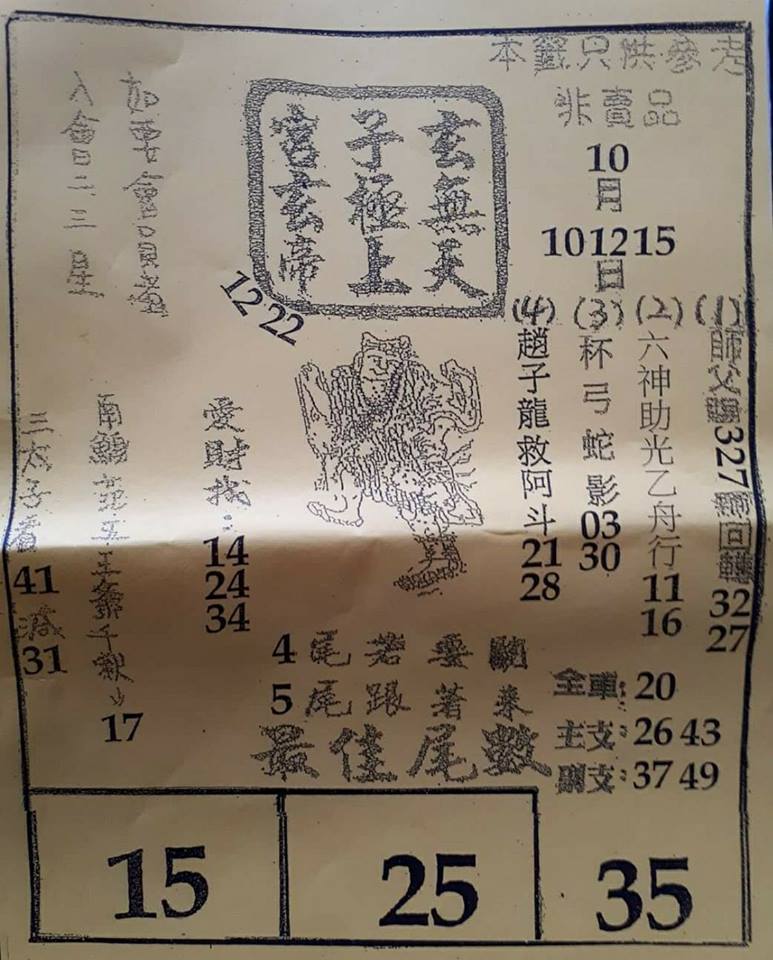 本籤只供參考
非賣品
10月
10 12 15日
玄無天
子極上
宮玄帝
12 22
(1) 師父 327 回轉 32 27
(2) 六神助光乙舟行 11 16
(3) 杯弓蛇影 03 30
(4) 趙子龍救阿斗 21 28
愛財找: 14 24 34
南鯤 王 千秋 17
三太子 41 減 31
入會
4尾若要
5尾跟著來
最佳尾數
全車: 20
主支: 26 43
副支: 37 49
15
25
35